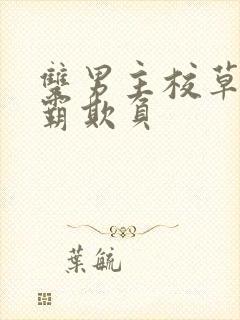 雙男主校草
霸欺負
葉毓